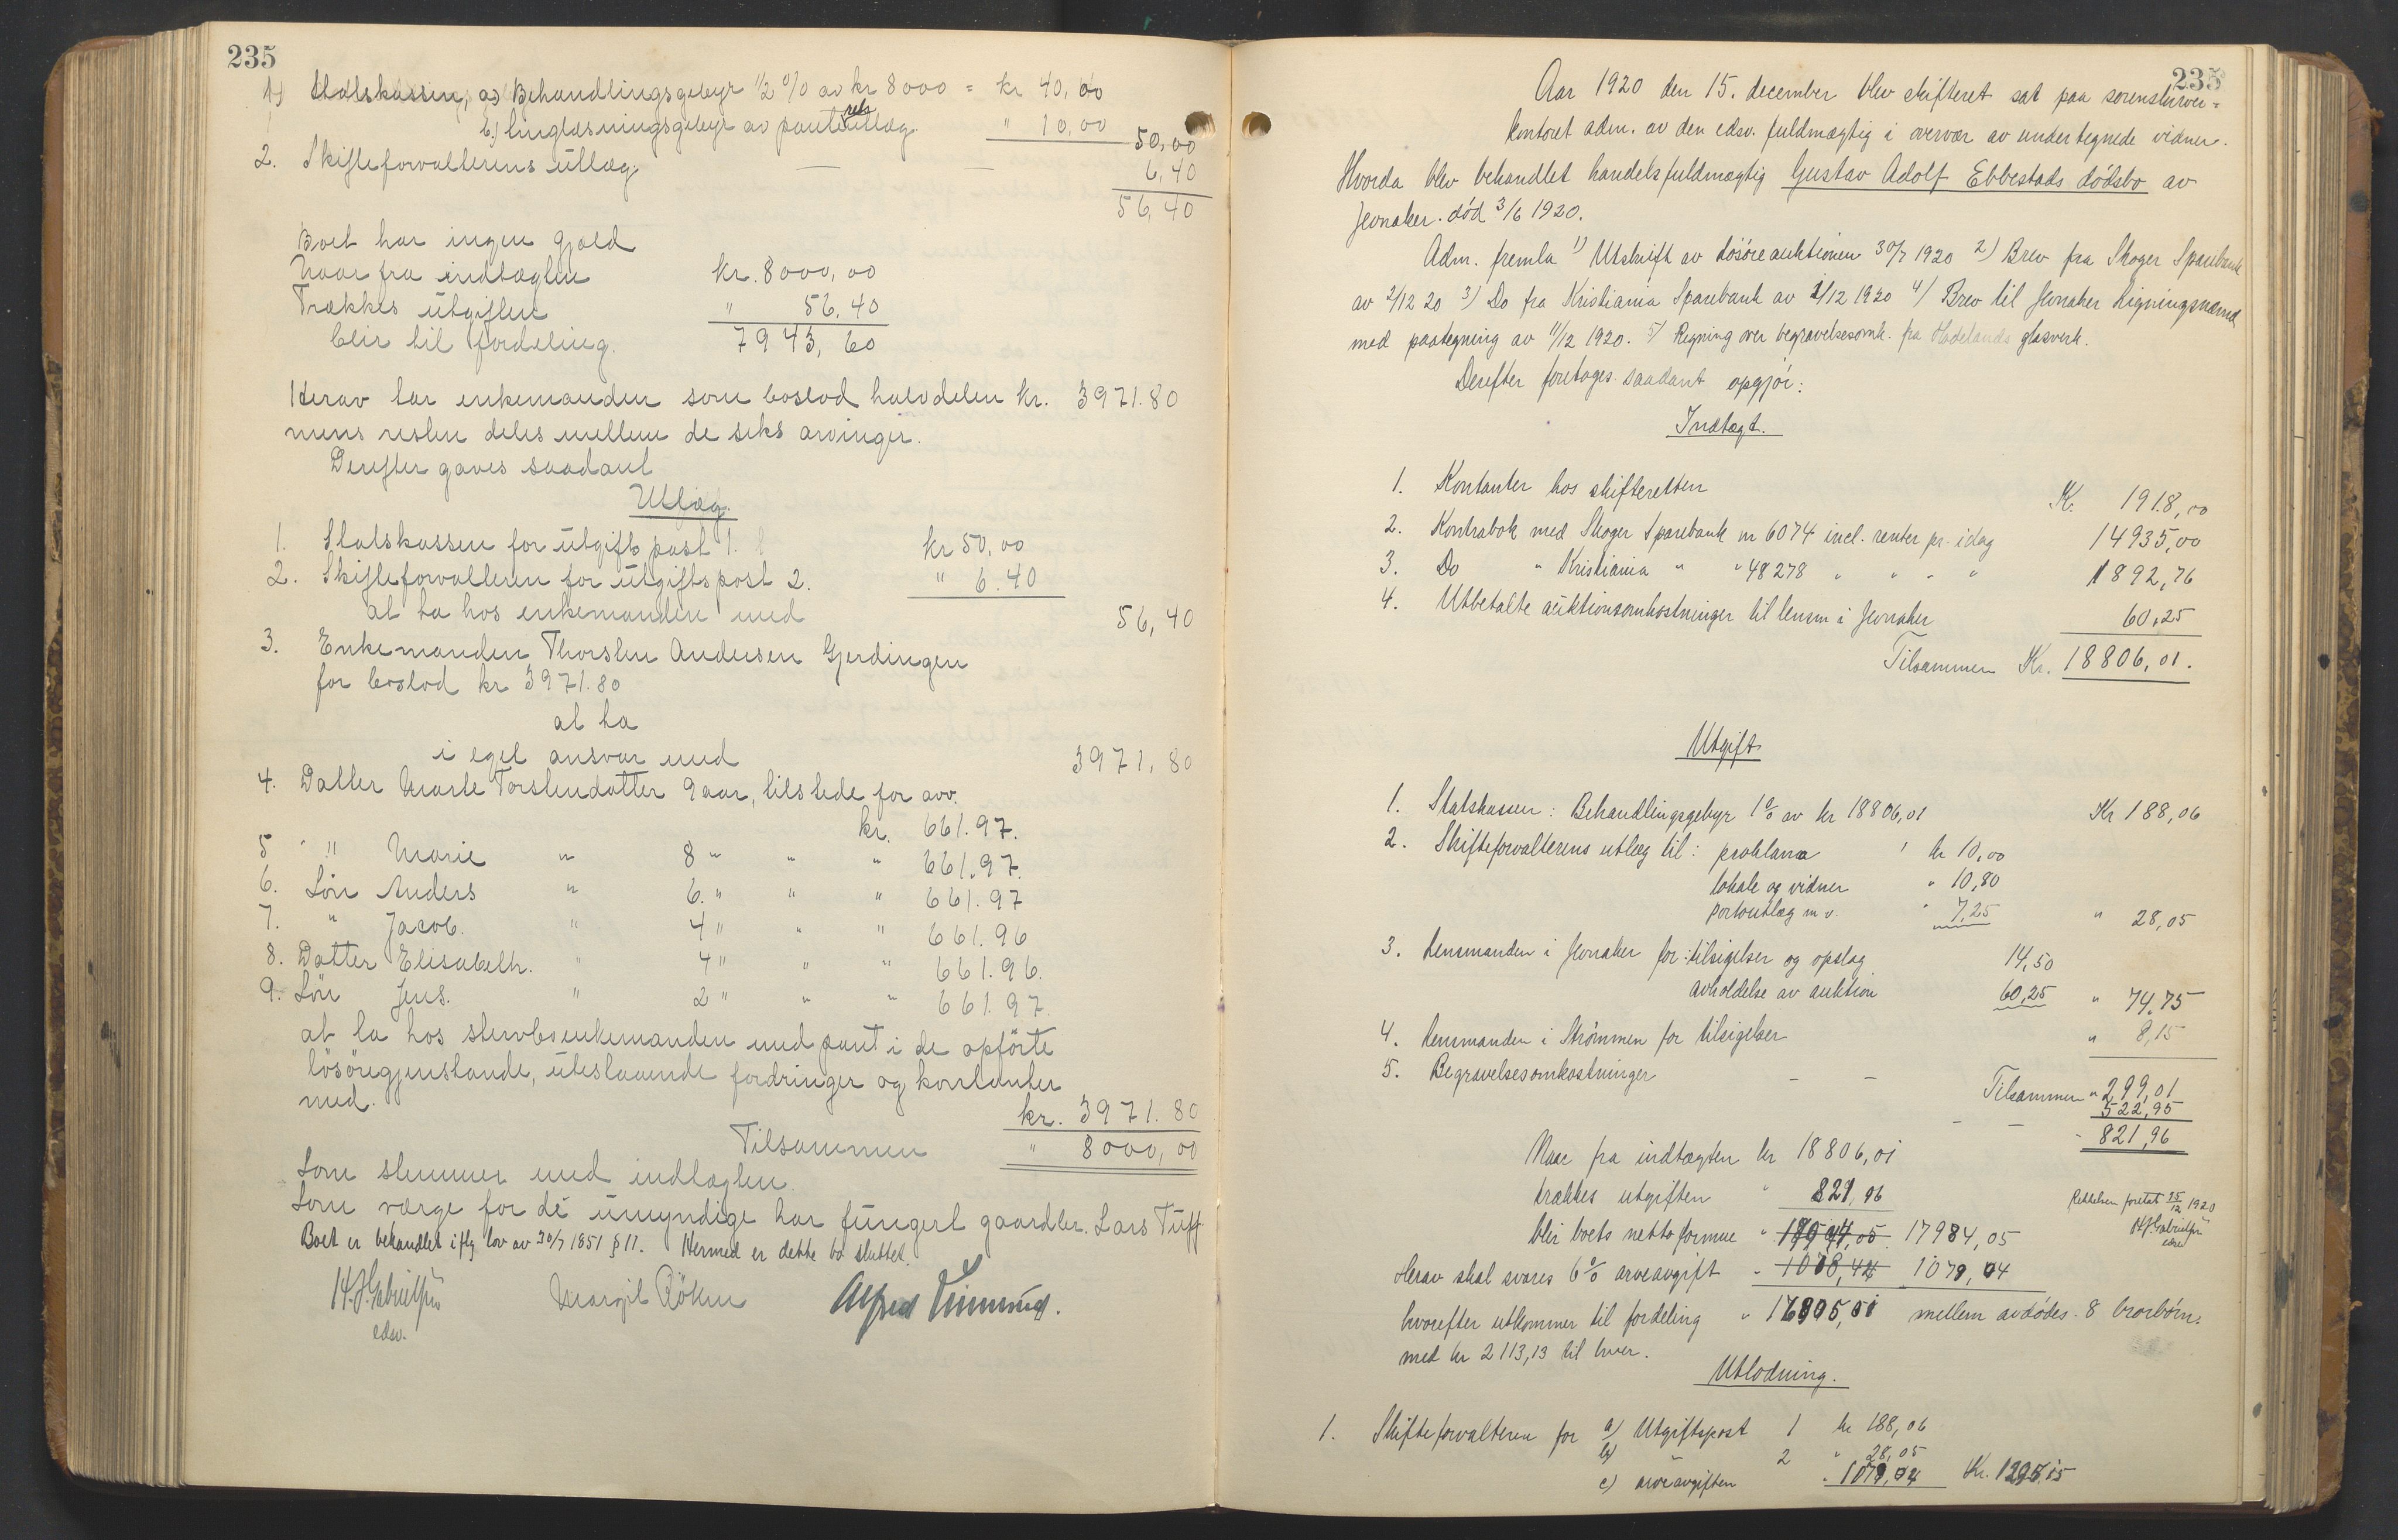 235
1) Statskassen, a) Behandlingsgebyr 1/2 % av kr 8000 = kr 40,00
b.) tinglæsningsgebyr av pantsutlæg. " 10,00 50,00
2. Skifteforvalterens utlæg — — 6,40
56,40
Boet har ingen gjæld
Naar fra indtægten kr. 8000,00
Trækkes utgiften " 56,40
blir til fordeling. 7943,60
Herav tar enkemanden som boslod halvdelen kr. 3971.80
mens resten deles mellem de seks arvinger.
Derefter gaves saadant
Utlæg.
1. Statskassen for utgifts post 1. kr 50,00
2. Skifteforvalteren for utgiftspost 2. " 6.40
at ta hos enkemanden med 56,40
3. Enkemanden Thorsten Andersen Gjerdingen
for boslod kr 3971.80
at ta
i eget ansvar med 3971,80
4. Datter Marte Torstendatter 9 aar, tilstede for arv.
kr. 661.97.
5 " " Marie " 8 " " " 661.97.
6. Sön Anders " 6. " " " 661.97
7. " Jacob. " 4 " " " 661.96
8. Datter Elisabeth. " 4 " " " 661.96.
9. Sön Jens. " 2 " " " 661.97.
at ta hos stervboenkemanden med pant i de opförte
lösöregjenstande, utestaaende fordringer og kontanter
med. kr. 3971.80
Tilsammen " 8000,00
Som stemmer med indtægten.
Som værge for de umyndige har fungert gaardbr. Lars Tuff
Boet er behandlet iflg lov av 30/7 1851 § 11. Hermed er dette bo sluttet.
H.J. Gabrielsen Margit Röken Alfred
edsv.
235
Aar 1920 den 15. december blev skifteret sat paa sorenskriver=
kontoret adm. av den edsv. fuldmægtig i overvær av undertegnede vidner.
Hvorda blev behandlet handelsfuldmægtig Gustav Adolf Ebbestads dødsbo av
Jevnaker. død 3/6 1920.
Adm. fremla 1) Utskrift av løsøreauktionen 30/7 1920 2) Brev fra Skoger Sparebank
av 2/12 20 3) Do fra Kristiania Sparebank av 1/12 1920 4) Brev til Jevnaker Ligningsnævnd
med paategning av 11/12 1920. 5) Regning over begravelsesomk. fra Hadelands glasverk.
Derefter foretoges saadant opgjør:
Indtægt.
1. Kontanter hos skifteretten Kr. 1918,00
2. Kontrabok med Skoger Sparebank nr 6074 incl. renter pr. idag 14935,00
3. Do " Kristiania " " 48278 " " " " 1892,76
4. Utbetalte auktionsomkostninger til lensm i Jevnaker 60,25
Tilsammen Kr. 18806,01.
Utgift
1. Statskassen: Behandlingsgebyr 1 % av kr 18806,01 Kr 188,06
2. Skifteforvalterens utlæg til: proklama kr 10,00
lokale og vidner " 10,80
portoutlæg m v. " 7,25 " 28,05
3. Lensmanden i Jevnaker for: tilsigelser og opslag 14,50
avholdelse av auktion 60,25 " 74,75
4. Lensmanden i Strømmen for tilsigelser " 8,15
5. Begravelsesomkostninger — — Tilsammen " 299,01
— — 522,95
- 821,96
Naar fra indtægten kr 18806,01
trækkes utgiften " 821,96
Rettelsen foretat 15/12 1920
H.J. Gabrielsen
edsv
blir boets nettoformue " 17984,05
Herav skal svares 6 % arveavgift " 1079,04
hvorefter utkommer til fordeling " 16905,01 mellem avdødes 8 brorbørn.
med kr 2113,13 til hver.
Utlodning.
1. Skifteforvalteren for a) Utgiftspost 1 kr 188,06
b) " 2 " 28,05
c) arveavgiften " 1079,04 Kr. 1295,15